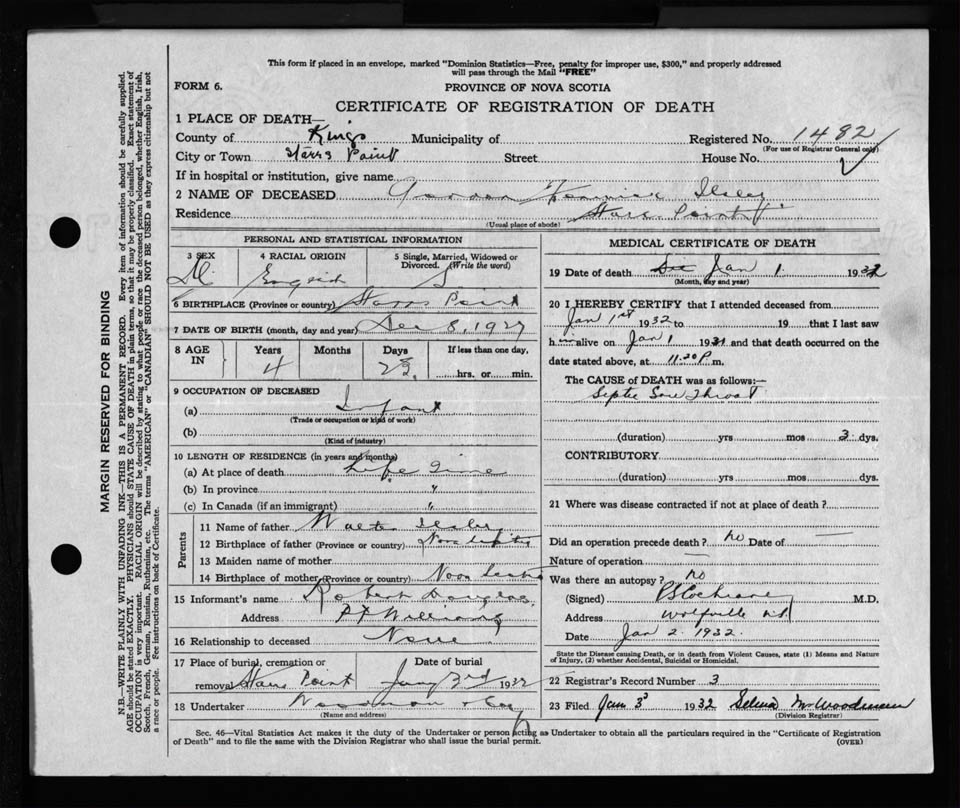 This form if placed in an envelope, marked "Dominion Statistics—Free, penalty for improper use, $300," and properly addressed
will pass through the Mail "FREE"
FORM 6.
PROVINCE OF NOVA SCOTIA
CERTIFICATE OF REGISTRATION OF DEATH
1 PLACE OF DEATH—
County of Kings Municipality of Registered No. 1482
(For use of Registrar General only)
City or Town Starrs Point Street House No.
If in hospital or institution, give name
2 NAME OF DECEASED Gordon
Residence Starrs Point
(Usual place of abode)
PERSONAL AND STATISTICAL INFORMATION
3 SEX 4 RACIAL ORIGIN 5 Single, Married, Widowed or Divorced. (Write the word)
M. English S
6 BIRTHPLACE (Province or country) Starrs Point
7 DATE OF BIRTH (month, day and year) Dec 8, 1927
8 AGE IN Years Months Days If less than one day,
4 23 hrs. or min.
9 OCCUPATION OF DECEASED
(a) Infant
(Trade or occupation or kind of work)
(b)
(Kind of industry)
10 LENGTH OF RESIDENCE (in years and months)
(a) At place of death Life Time
(b) In province "
(c) In Canada (if an immigrant) "
Parents
11 Name of father Walter
12 Birthplace of father (Province or country) Nova Scotia
13 Maiden name of mother
14 Birthplace of mother (Province or country) Nova Scotia
15 Informant's name Robert Douglas
Address Pt Williams
16 Relationship to deceased None
17 Place of burial, cremation or removal Starrs Point
Date of burial Jany 3rd 1932
18 Undertaker Woodman
(Name and address)
MEDICAL CERTIFICATE OF DEATH
19 Date of death Dec Jan 1 1932
(Month, day and year)
20 I HEREBY CERTIFY that I attended deceased from
Jan 1st 1932 to 19 that I last saw
him alive on Jan 1 1931 and that death occurred on the
date stated above, at 11.20 P. m.
The CAUSE OF DEATH was as follows:—
Septic Sore Throat
(duration) yrs mos 3 dys.
CONTRIBUTORY
(duration) yrs mos dys.
21 Where was disease contracted if not at place of death?
Did an operation precede death? No Date of —
Nature of operation —
Was there an autopsy? no
(Signed) Cochrane M.D.
Address Wolfville N.S.
Date Jan 2. 1932.
State the Disease causing Death, or in death from Violent Causes, state (1) Means and Nature
of Injury, (2) whether Accidental, Suicidal or Homicidal.
22 Registrar's Record Number 3
23 Filed Jan 3 1932 Selina M Woodman
(Division Registrar)
Sec. 46—Vital Statistics Act makes it the duty of the Undertaker or person acting as Undertaker to obtain all the particulars required in the "Certificate of Registration
of Death" and to file the same with the Division Registrar who shall issue the burial permit.
(OVER)
MARGIN RESERVED FOR BINDING
N.B.—WRITE PLAINLY WITH UNFADING INK—THIS IS A PERMANENT RECORD. Every item of information should be carefully supplied.
AGE should be stated EXACTLY. PHYSICIANS should STATE CAUSE OF DEATH in plain terms, so that it may be properly classified. Exact statement of
OCCUPATION is very important. RACIAL ORIGIN will be described by stating to what people or race the deceased person belonged, whether English, Irish,
Scotch, French, German, Russian, Ruthenian, etc. The terms "AMERICAN" or "CANADIAN" SHOULD NOT BE USED as they express citizenship but not
a race or people. Fee instructions on back of Certificate.